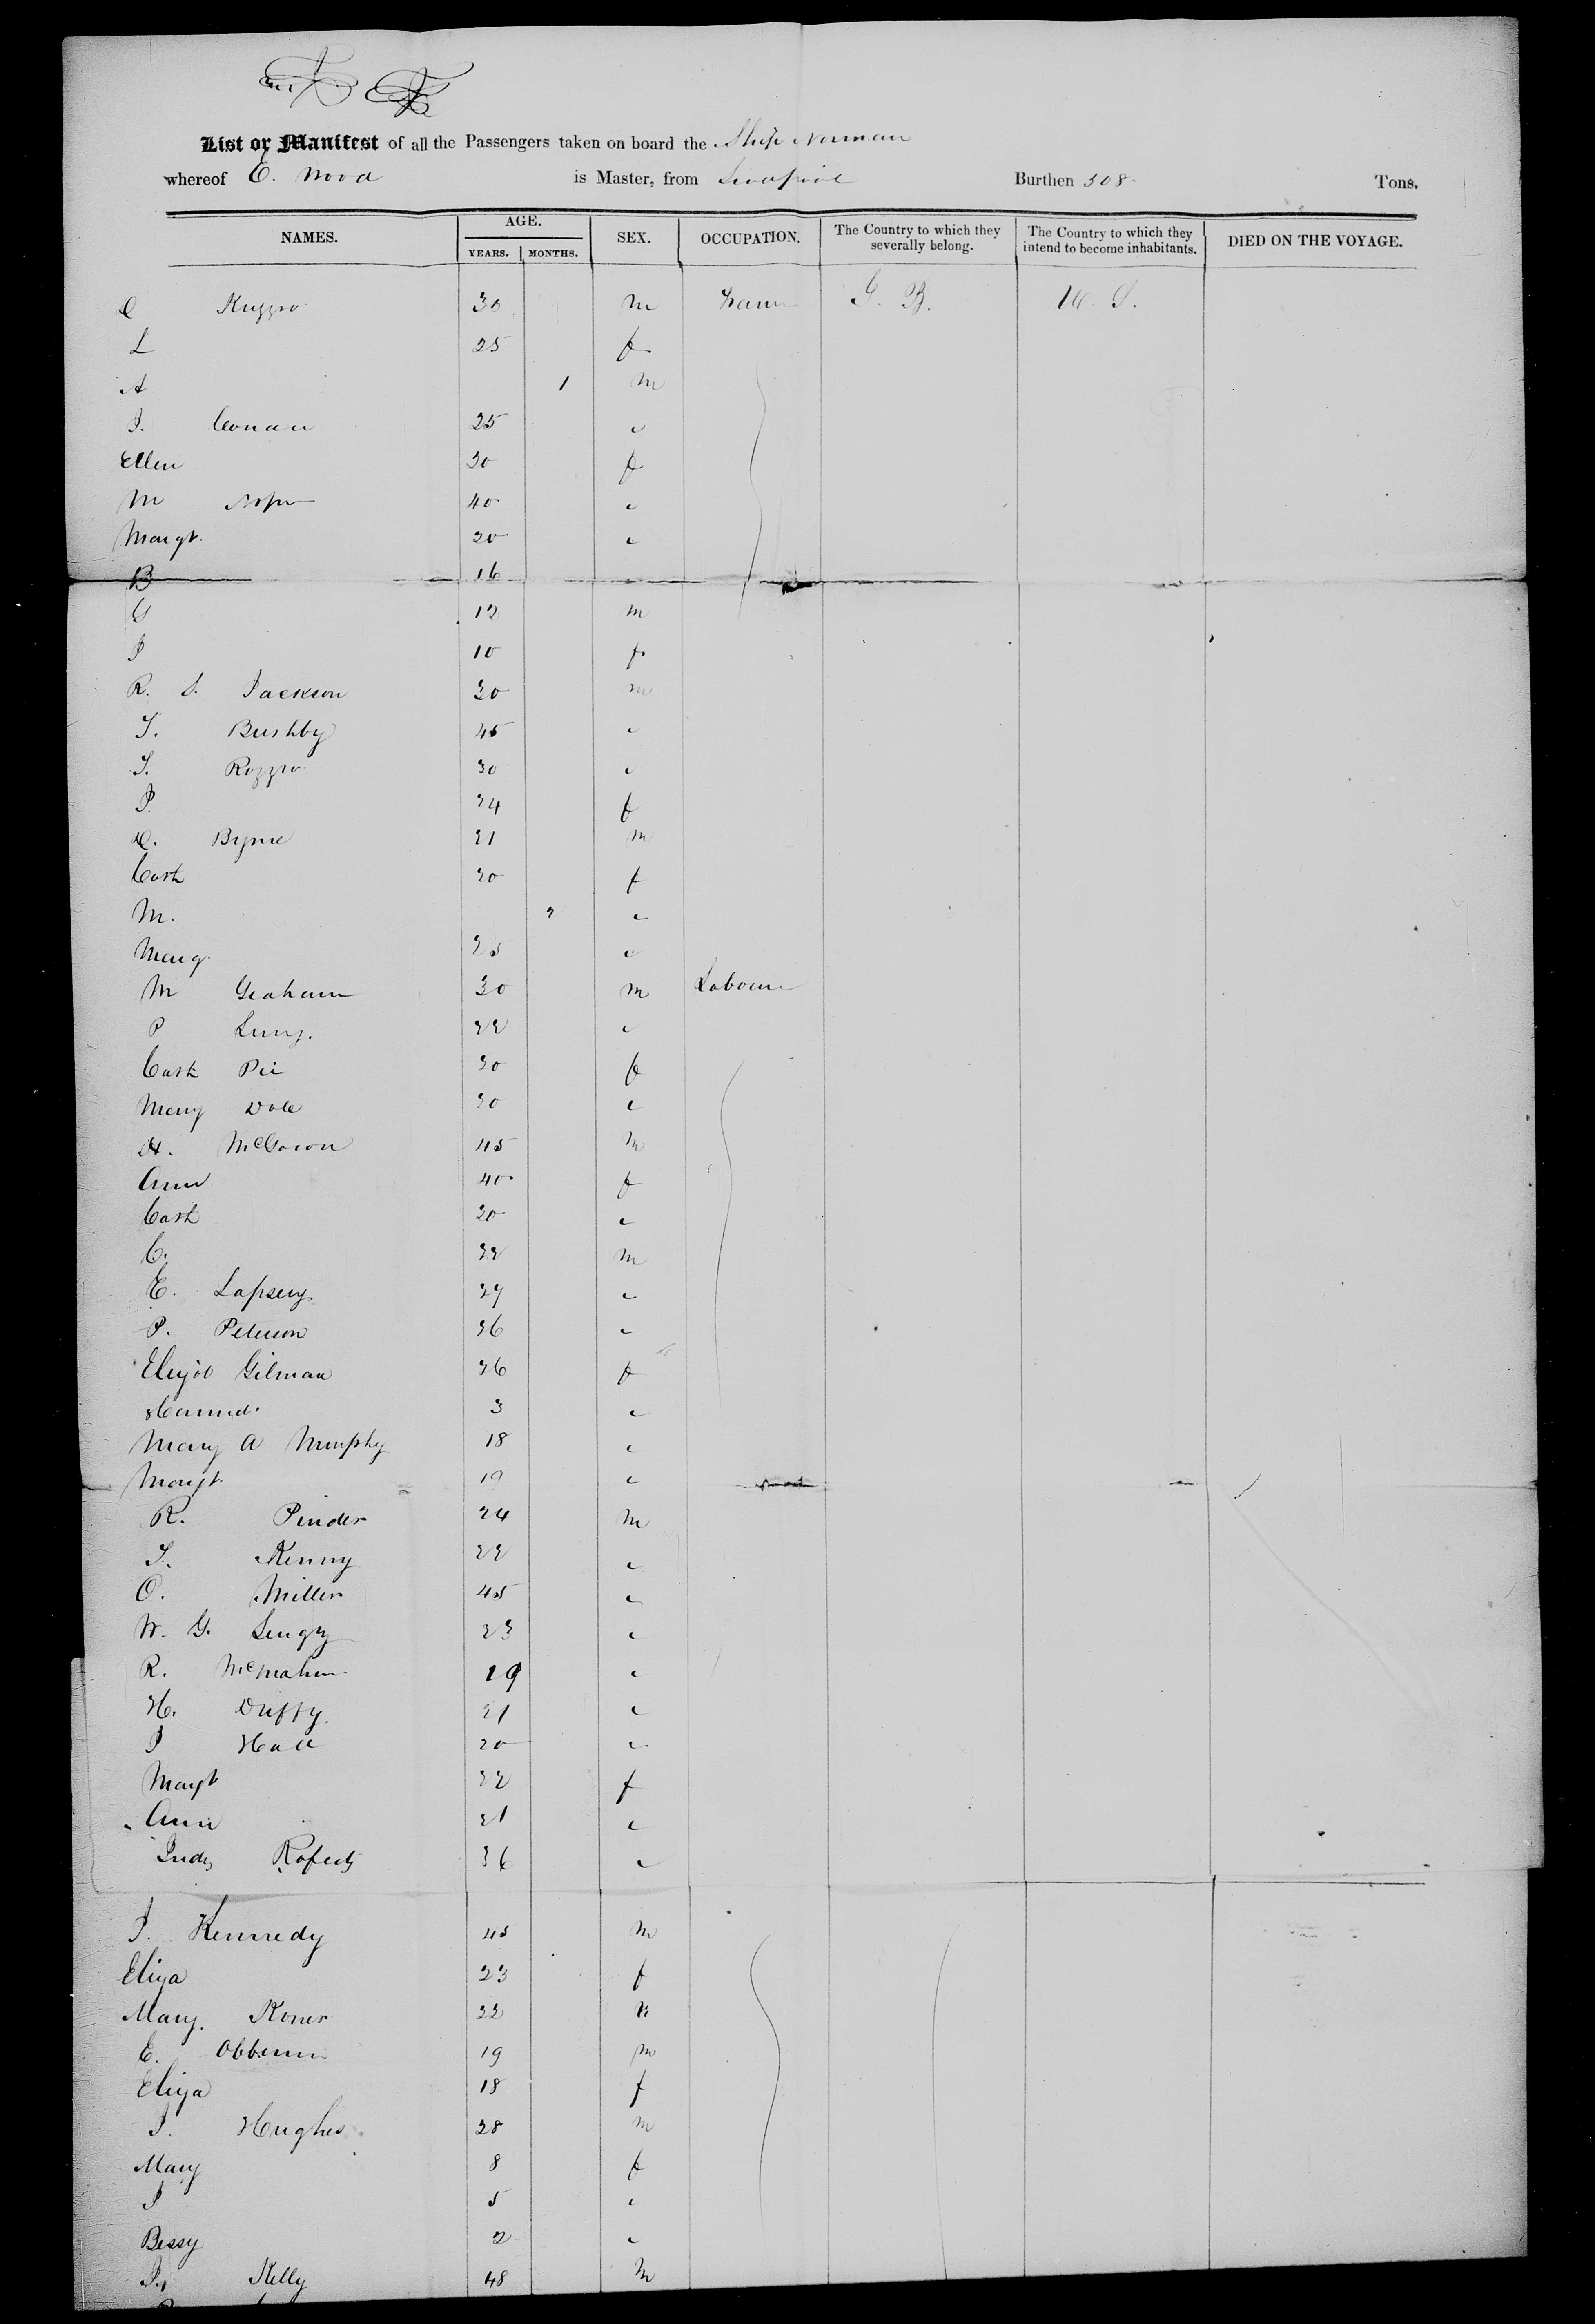 List or Manifest of all the Passengers taken on board the Ship Norman
whereof E. Wood is Master, from Liverpool Burthen 308 Tons.
NAMES. AGE. YEARS. MONTHS. SEX. OCCUPATION. The Country to which they severally belong. The Country to which they intend to become inhabitants. DIED ON THE VOYAGE.
30 m G. B. U. S.
L 25 f
A 1 m
J. Conan 25 "
Ellen 30 f
M 40 "
Margt. 20 "
B 16 "
12 m
J 10 f
R. S. Jackson 30 m
T. Bushby 45 "
T. Rozzro 30 "
P. 24 f
D. Byrne 21 m
Cath 20 f
M. 2 "
Marg. 25 "
M Graham 30 m Laboure
P Lung. 22 "
Cath 20 f
Mary Dole 20 "
H. McGowon 45 m
Ann 40 f
Cath 20 "
C. 22 m
E. Lapsey 29 "
P. Peterson 26 "
Gilman 26 f
3 "
Mary A Murphy 18 "
Margt. 19 "
R. Pinder 24 m
T. Kenny 22 "
O. Miller 45 "
W. G. 23 "
R. McMahon 19 "
H. Duffy. 21 "
J Hall 20 "
Margt 22 f
Ann 21 "
36 "
J. Kennedy 45 m
Eliza 23 f
Mary. 22 "
E. 19 m
Eliza 18 f
J. Hughes 28 m
Mary 8 f
J 5 "
Bessy 2 "
Kelly 48 m